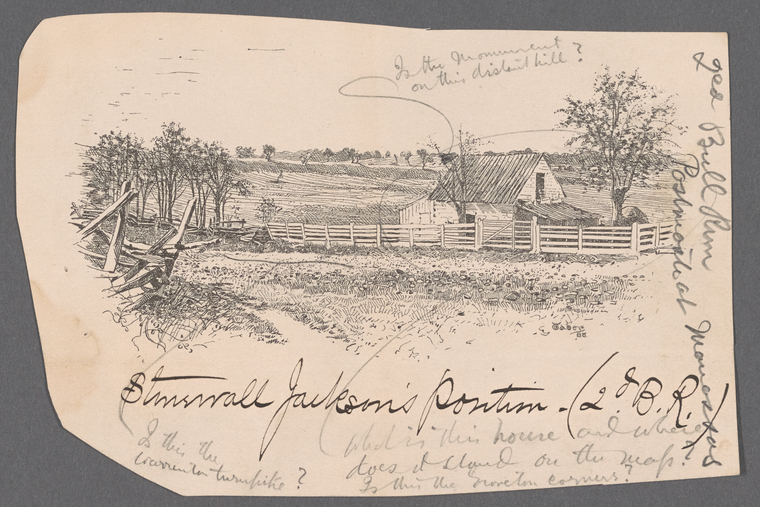 Is the Monument
on this distant hill?
2ed Bull Run
Postmost at Manassas
Tabor
Stonewall Jackson's position - (2d B. R.)
Is this the
Warrenton turnpike?
What is this house and where
does it stand on the map?
Is this the Groveton corners?